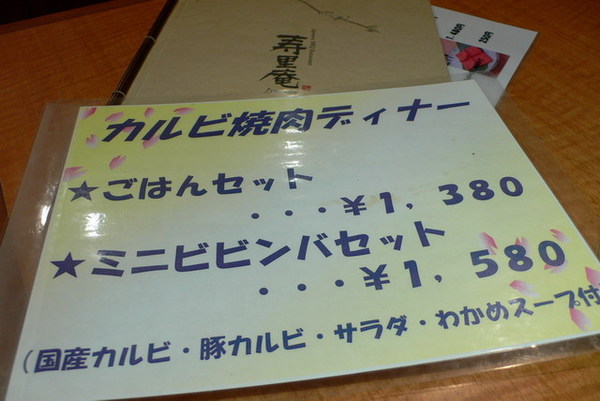 寿里庵
1,480円
250円
カルビ焼肉ディナー
★ごはんセット
・・・¥1,380
★ミニビビンバセット
・・・¥1,580
(国産カルビ・豚カルビ・サラダ・わかめスープ付